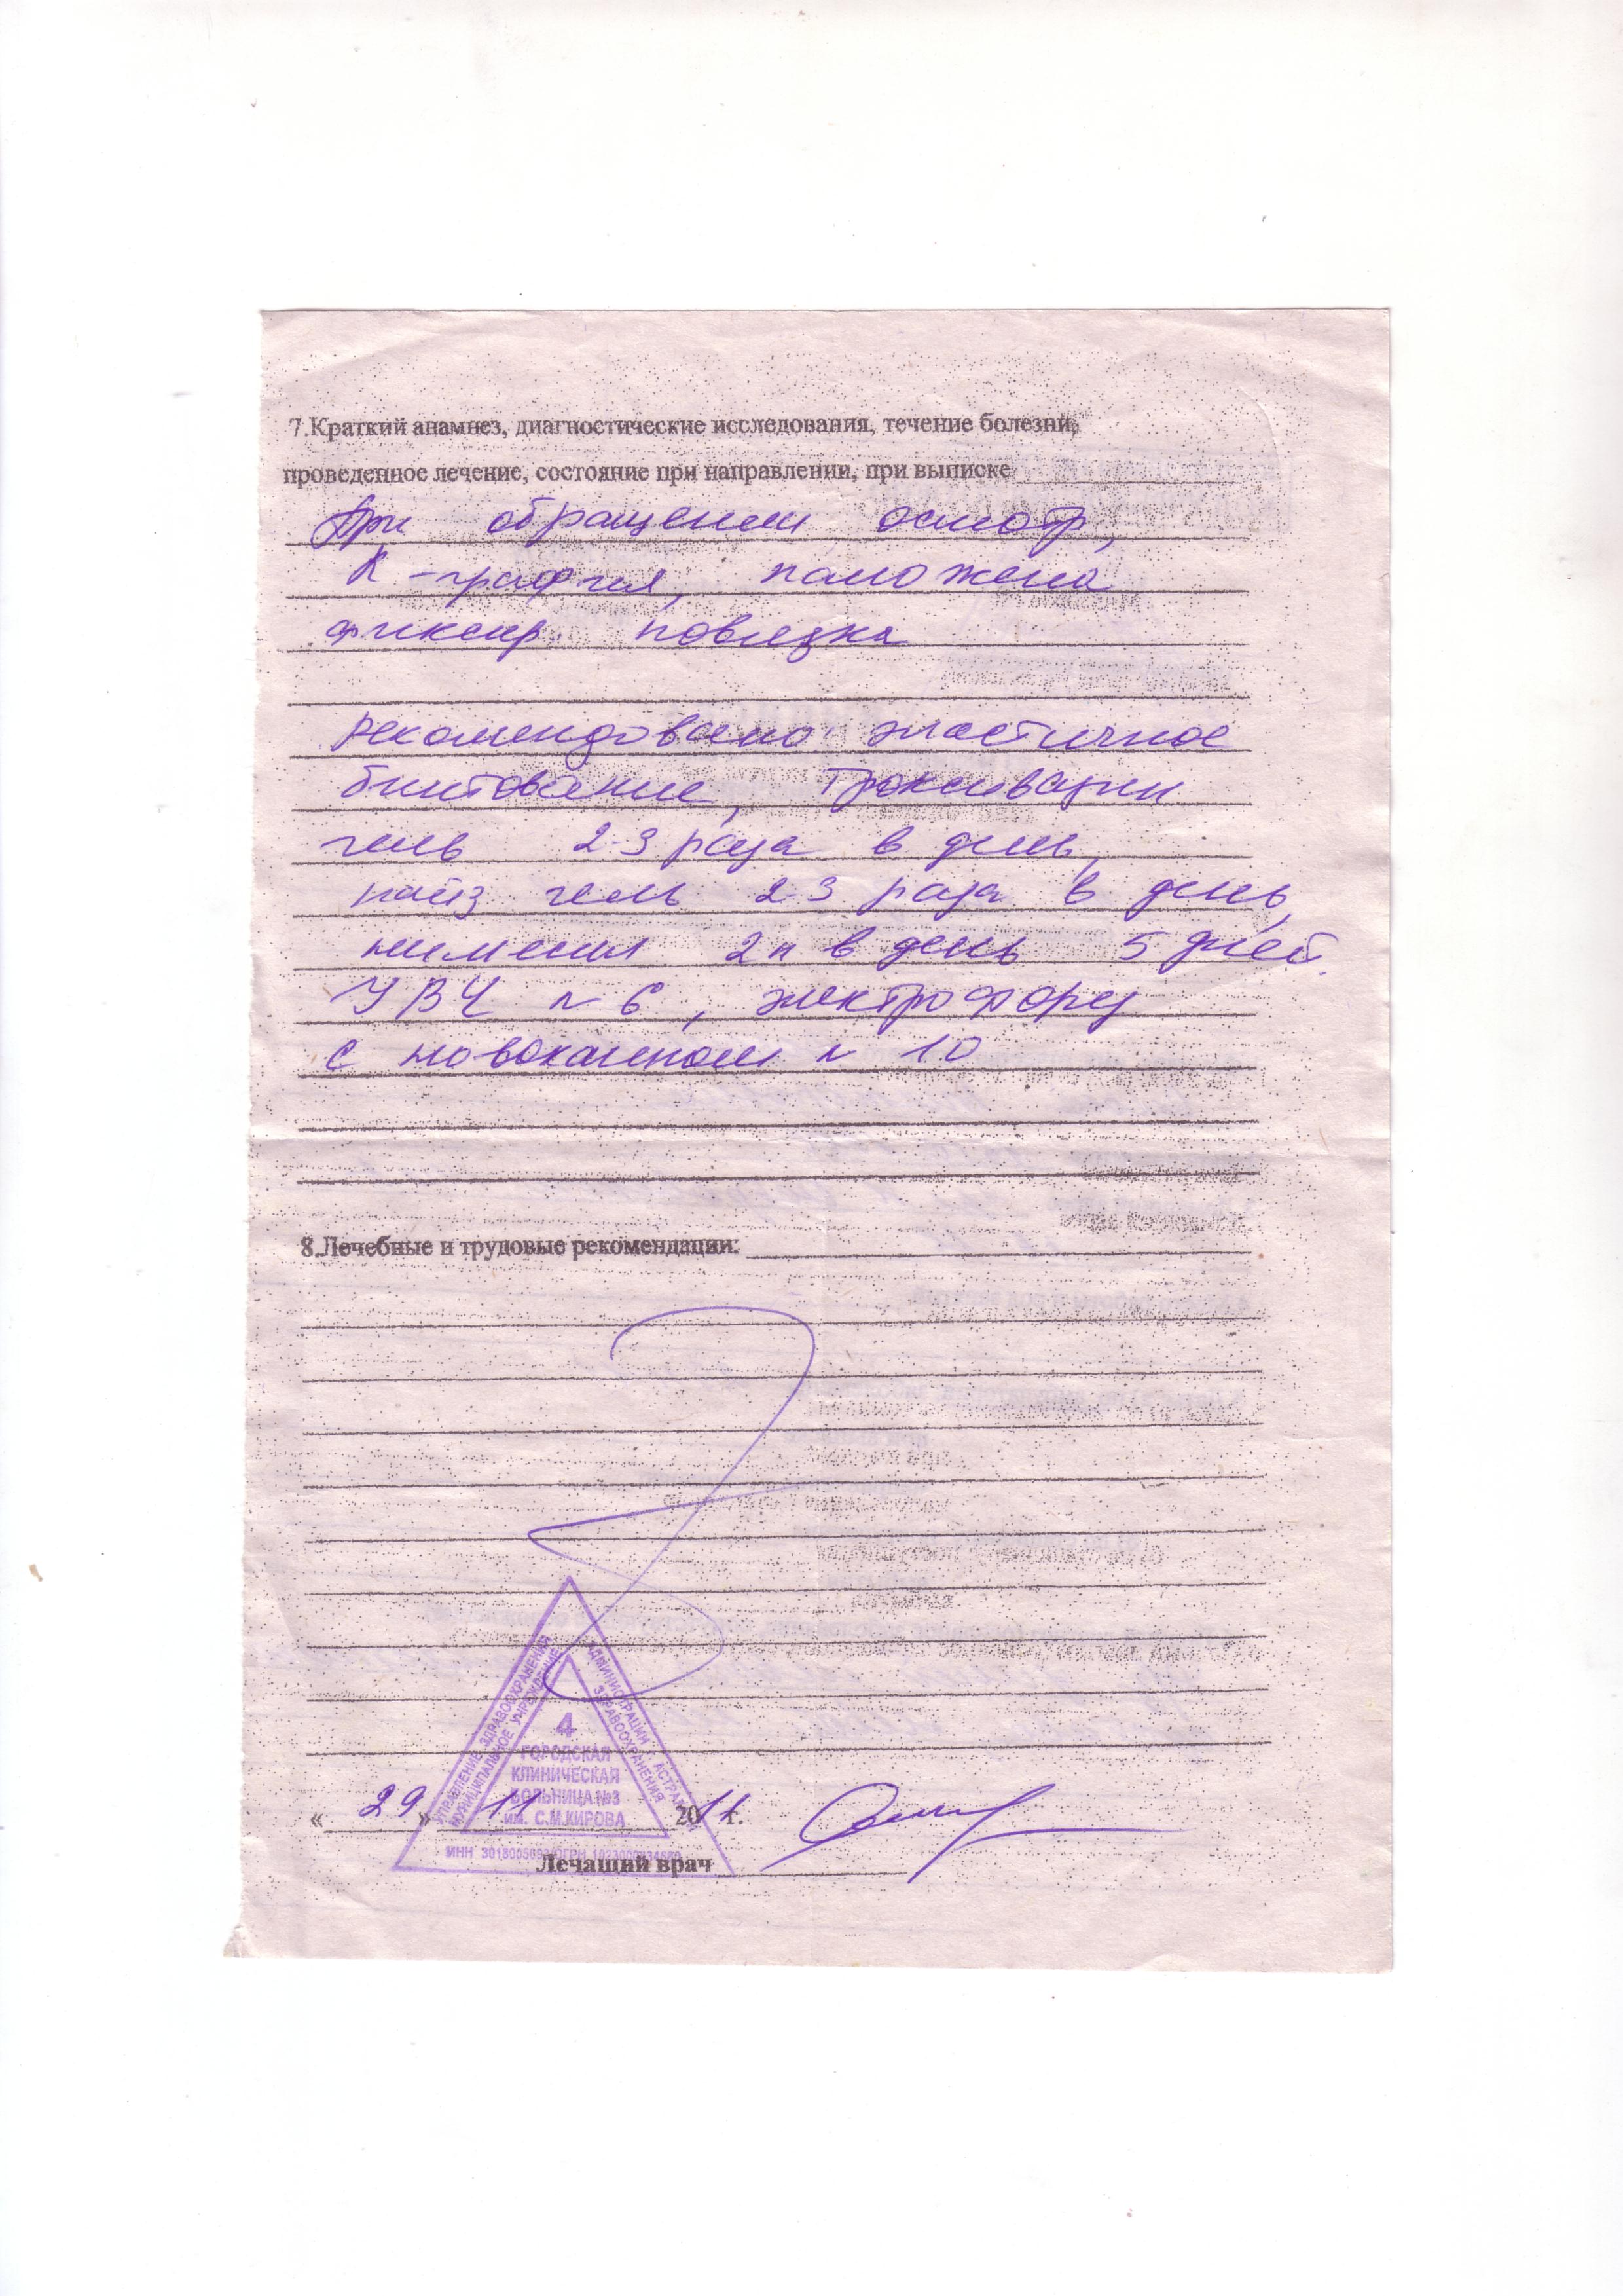 7.Краткий анамнез, диагностические исследования, течение болезни,
проведенное лечение, состояние при направлении, при выписке
При обращении осмотр,
R-графия, наложена
фиксир повязка
рекомендовано эластичное
бинтование, Троксевазин
гель 2-3 раза в день,
найз гель 2-3 раза в день,
нимесил 2п в день 5 дней.
УВЧ N 6, электрофорез
с новокаином N 10
8.Лечебные и трудовые рекомендации:
УПРАВЛЕНИЕ ЗДРАВООХРАНЕНИЯ АДМИНИСТРАЦИИ Г. АСТРАХАНИ
МУНИЦИПАЛЬНОЕ УЧРЕЖДЕНИЕ ЗДРАВООХРАНЕНИЯ
4
ГОРОДСКАЯ
КЛИНИЧЕСКАЯ
БОЛЬНИЦА №3
им. С.М.КИРОВА
« 29 » 11 2011 г.
ИНН ОГРН
Лечащий врач